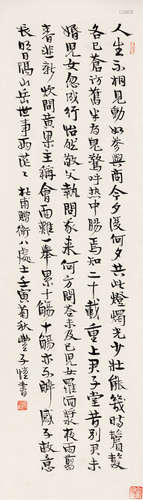 人生不相見動如參與商今夕復何夕共此燈燭光少壯能幾時鬢髮
各已蒼訪舊半為鬼驚呼熱中腸焉知二十載重上君子堂昔別君未
婚兒女忽成行怡然敬父執問我來何方問答未及已兒女羅酒漿夜雨剪
春韭新炊間黃粱主稱會面難一舉累十觴十觴亦不醉感子故意
長明日隔山岳世事兩茫茫 杜甫贈衛八處士 壬寅秋豐子愷書